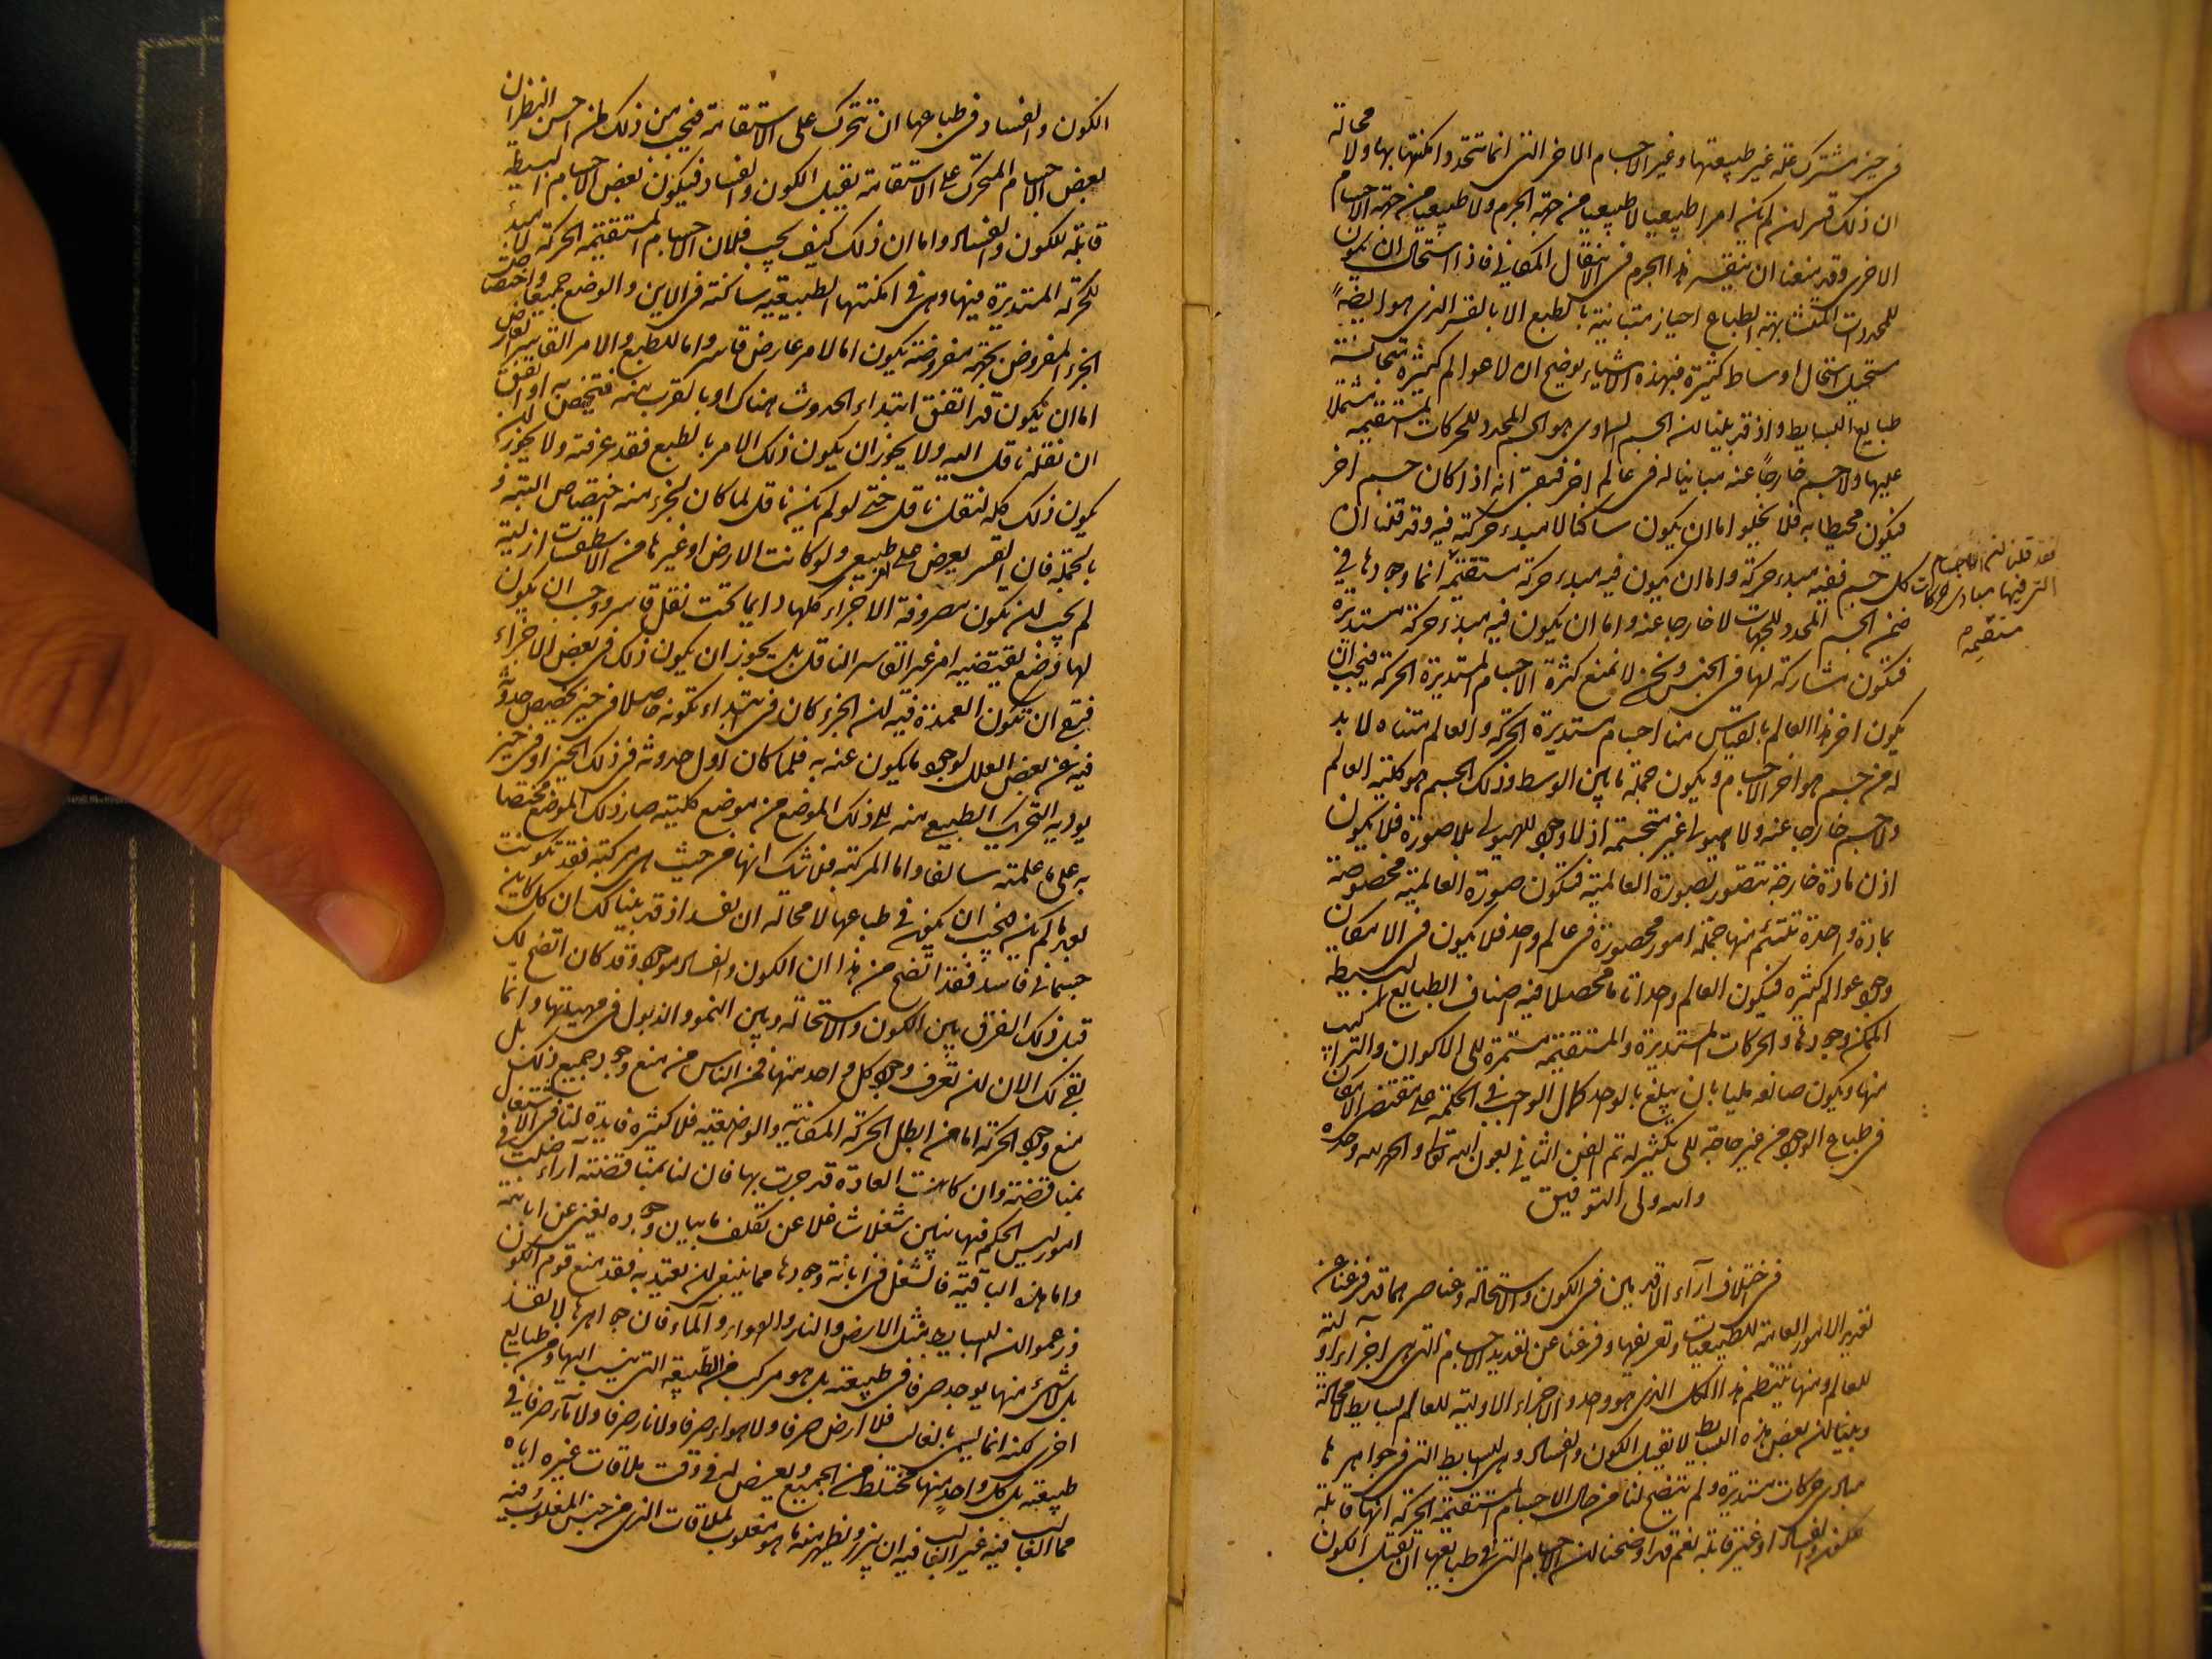 في حيز مشترك علة غير طبيعتها وغير الاجسام الاخر التي انما تتحدد امكنتها بها ولا محالة
ان ذلك قسر لن لم يكن امرا طبيعيا لا طبيعيا من جهة الجرم ولا طبيعيا من جهة الاجسام
الاخرى وقد منعنا ان ينقسر هذا الجرم في الانتقال المكاني فاذا استحال ان يكون
للمحددات المتشابهة الطباع احياز متباينة بالطبع الا بالقسر الذي هو ايضا
مستحيل استحال اوساط كثيرة فبهذه الاشياء يوضح ان لا عوالم كثيرة متجانسة
طبايع البسايط واذ قد بينا لن الجسم السماوي هو الجسم المحدد للحركات المستقيمة مشتملا
عليها ولا جسم خارجا عنه مباينا له في عالم اخر فبقى انه اذا كان جسم اخر
فيكون محيطا به فلا يخلو اما ان يكون ساكنا لا مبدء حركة فيه وقد قلنا ان
كل جسم ففيه مبدء حركة واما ان يكون فيه مبدء حركة مستقيمة انما وجودها في
فقد قلنا لن الاجسام
التي فيها مبادى حركات
مستقيمة
ضمن الجسم المحدد للجهات لا خارجا عنه واما ان يكون فيه مبدء حركة مستديرة
فتكون مشاركة لها في الجنس ونحن لا نمنع كثرة الاجسام المستديرة الحركة فيجب ان
يكون اخر هذا العالم بالقياس منا اجسام مستديرة الحركة والعالم متناه لا بد
له من جسم هو اخر الاجسام ويكون جملة ما بين الوسط وذلك الجسم هو كلية العالم
ولا جسم خارجا عنه ولا هيولى غير متجسمة اذ لا وجود للهيولى بلا صورة فلا يكون
اذن مادة خارجة تتصور بصورة العالمية فتكون صورة العالمية مخصوصة
بمادة واحدة تلتئم منها جملة امور محصورة في عالم واحد فلا يكون في الامكان
وجود عوالم كثيرة فيكون العالم واحدا تاما محصلا فيه اصناف الطبايع البسيطة
الممكن وجودها والحركات المستديرة والمستقيمة مستمرة للى الاكوان والتراكيب
منها ويكون صانعه مليا بان يبلغ بالواحد كمال الواجب في الحكمة على مقتضى الامكان
في طباع الوجود من غير حاجة للى تكثير له تم الفن الثاني بعون الله تعالى والحمد لله وحده
والله ولى التوفيق
في اختلاف آراء الاقدمين في الكون والاستحالة وعناصرهما قد فرغنا عن
تعديد الامور العامة للطبيعيات وتعريفها وفرغنا عن تعديد الاجسام التي هي اجزاء اولية
للعالم ومنها ينتظم هذا الكل الذي هو واحد والاجزاء الاولية للعالم بسايط لا محالة
وبينا لن بعض هذه البسايط لا تقبل الكون والفساد وهي البسايط التي في جواهرها
مبادى حركات مستديرة ولم يتضح لنا من حال الاجسام المستقيمة الحركة انها قابلة
للكون والفساد او غير قابلة نعم قد اوضحنا لن الاجسام التي في طباعها ان تقبل الكون
الكون والفساد في طباعها ان تتحرك على الاستقامة فيجب من ذلك لمن احسن النظر ان
بعض الاجسام المتحرك على الاستقامة يقبل الكون والفساد فيكون بعض الاجسام البسيطة
قابلة للكون والفساد واما ان ذلك كيف يجب فلان الاجسام المستقيمة الحركة لا مبدء
للحركة المستديرة فيها وهي في امكنتها الطبيعية ساكنة في الاين والوضع جميعا واختصاص
الجزء المفروض بجهة مفروضة يكون اما لامر عارض قاسر واما للطبع والامر القاسر العارض
اما ان يكون قد اتفق ابتداء الحدوث هناك او بالقرب منه فيختص به او اتفق
ان نقله ناقل اليه ولا يجوز ان يكون ذلك الامر بالطبع فقد عرفته ولا يجوز لن
يكون ذلك كله لنقل ناقل حتى لو لم يكن ناقل لما كان للجزء منه اختصاص البتة و
بالجملة فان القسر يعرض على طبيعى ولو كانت الارض او غيرها من الاسطقسات ازلية
لم يجب لن يكون مصروفة الاجزاء كلها دايما تحت نقل قاسر ووجب ان يكون
لها وضع يقتضيه امر غير القاسر الناقل بل يجوز ان يكون ذلك في بعض الاجزاء
فبقى ان تكون العمدة فيه لن الجزء كان في ابتداء تكونه حاصلا في حيز يخصص حدوثه
فيه عن بعض العلل لوجود ما يكون عنه به فلما كان اول حدوثه في ذلك الحيز او في حيز
يوديه التحريك الطبيعى منه للى ذلك الموضع من موضع كليته صار ذلك الموضع مختصا
به على ما علمته سالفا واما المركبة فلا شك انها من حيث هي مركبة فقد تكونت
بعد ما لم يكن فيجب ان يكون في طباعها لا محالة ان تفسد اذ قد بينا لك ان كل كاين
جسماني فاسد فقد اتضح من هذا ان الكون والفساد موجود وقد كان اتضح لك
قبل ذلك الفرق بين الكون والاستحالة وبين النمو والذبول في مهيتها وانما
بقى لك الان لن تعرف وجود كل واحد منها فمن الناس من منع وجود جميع ذلك بل
منع وجود الحركة اما من ابطل الحركة المكانية والوضعية فلا كثير فايدة لنا في الاشتغال
بمناقضته وان كانت العادة قد جرت بها فان لنا بمناقضة آراء ضلت في
امور ليس الحكم فيها ببين شغلا شاغلا عن تكلف ما بيان وجوده يغنى عن ابانته
واما هذه الباقية فالشغل في ابانة وجودها مما ينبغي لن يعتد به فقد منع قوم الكون
وزعموا لن البسايط مثل الارض والنار والهواء والماء فان جواهرها لا تفسد
بل لا شئ منها يوجد صرفا في طبيعته بل هو مركب من الطبيعة التي ينسب اليها ومن طبايع
اخرى لكنه انما يسمى بالغالب فلا ارض صرفا ولا هواء صرفا ولا نار صرفا ولا ماء صرفا في
طبيعته بل كل واحد منها مختلط من الجميع ويعرض له في وقت ملاقات غيره اياه
مما الغالب فيه غير الغالب فيه ان يبرز ويظهر منه ما هو مغلوب لملاقات الذي من جنس المغلوب فيه